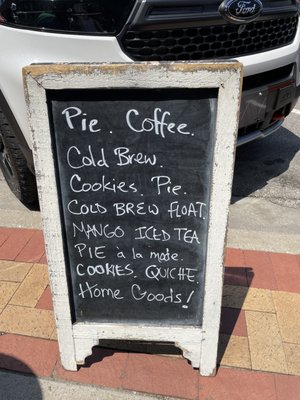 Ford
Pie. Coffee.
Cold Brew.
Cookies. Pie.
COLD BREW FLOAT.
MANGO ICED TEA
PIE à la mode.
COOKIES. QUICHE.
Home Goods!